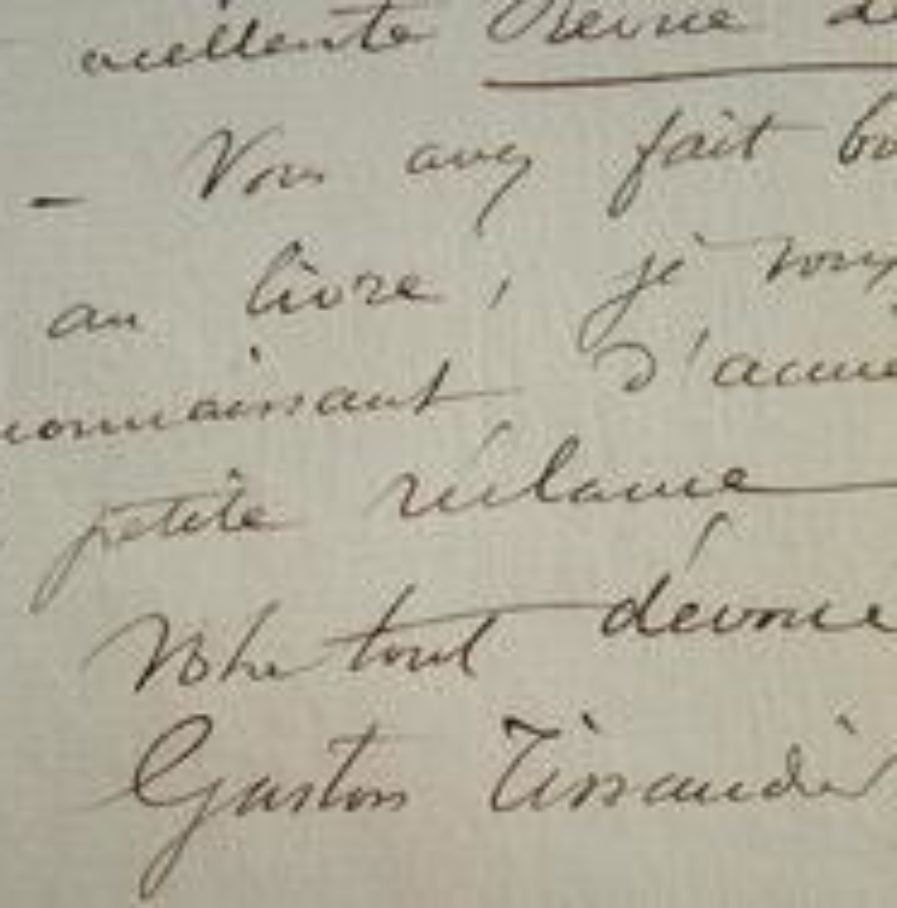 excellente Revue de
- Vous avez fait bo
au livre, je vous
connaissant d'avoir
petite réclame
Votre tout dévoué
Gaston Tissandier